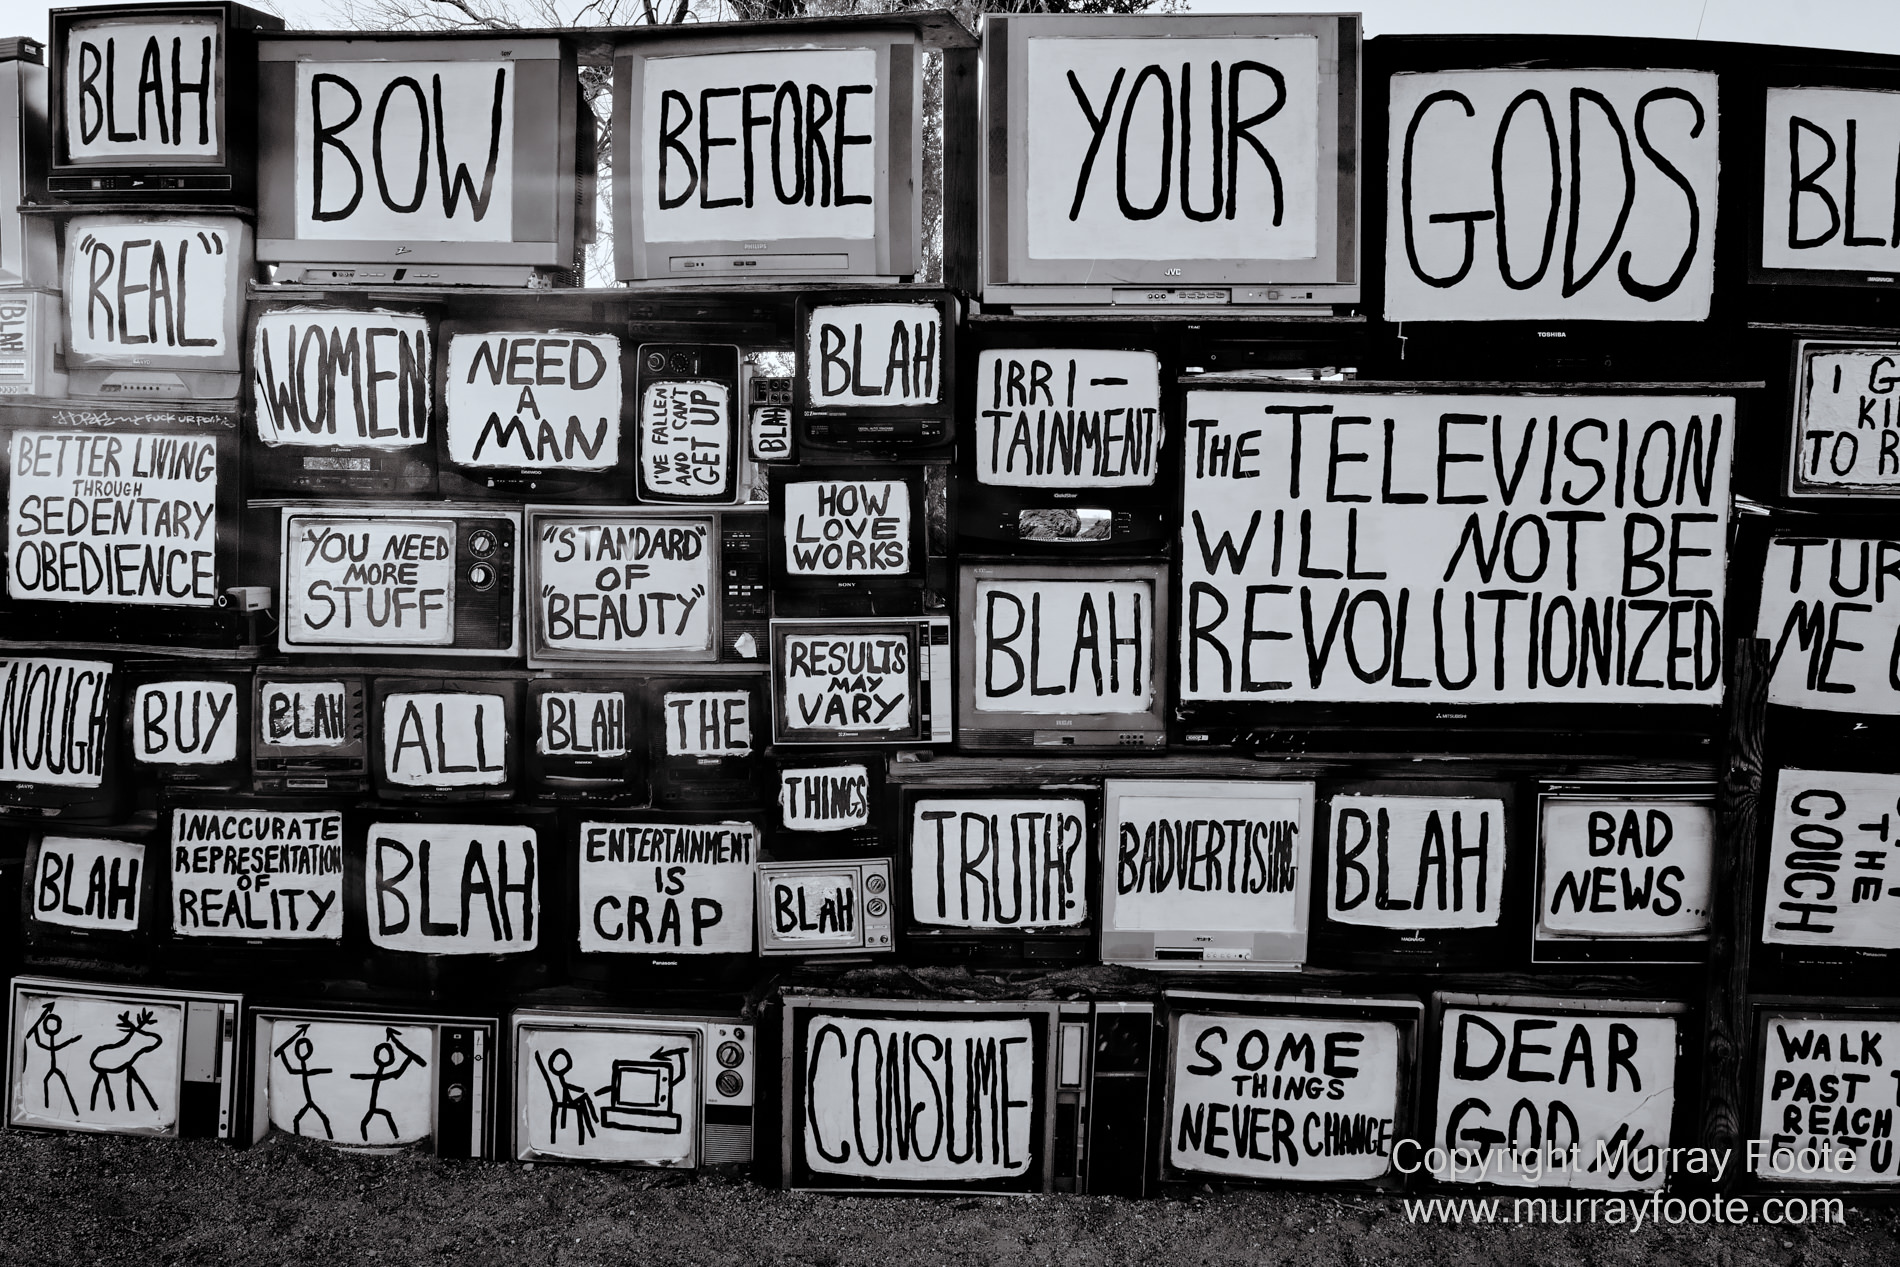 BLAH
BOW
BEFORE
YOUR
GODS
BL
"REAL"
BLAH
WOMEN
NEED
A
MAN
I'VE FALLEN
AND I CAN'T
GET UP
BLAH
BLAH
IRRI-
TAINMENT
THE TELEVISION
WILL NOT BE
REVOLUTIONIZED
I G
KI
TO R
FUCK UR
BETTER LIVING
THROUGH
SEDENTARY
OBEDIENCE
YOU NEED
MORE
STUFF
"STANDARD"
OF
"BEAUTY"
HOW
LOVE
WORKS
RESULTS
MAY
VARY
BLAH
TUR
ME
NOUGH
BUY
BLAH
ALL
BLAH
THE
THINGS
BLAH
INACCURATE
REPRESENTATION
OF
REALITY
BLAH
ENTERTAINMENT
IS
CRAP
BLAH
TRUTH?
BADVERTISING
BLAH
BAD
NEWS...
THE
COUCH
CONSUME
SOME
THINGS
NEVER CHANGE
DEAR
GOD
WALK
PAST
REACH
PHILIPS
JVC
TOSHIBA
SANYO
DAEWOO
GoldStar
SONY
RCA
MITSUBISHI
Panasonic
MAGNAVOX
Copyright Murray Foote
www.murrayfoote.com